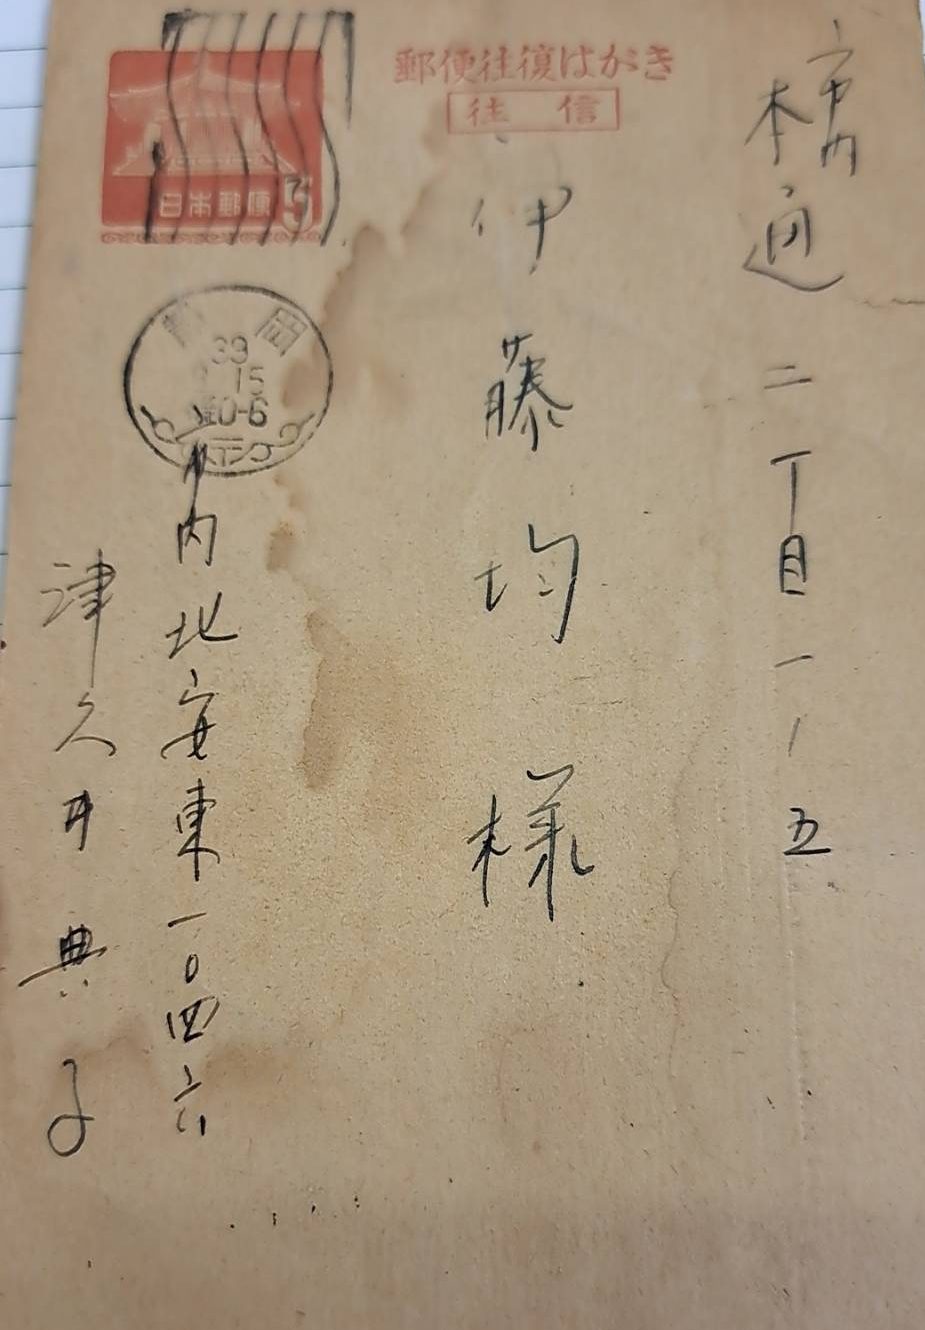 郵便往復はがき
往信
日本郵便 5
岡
39
15
市内
本通二丁目一ノ五
伊藤均様
市内北安東一〇四六
津久井典子